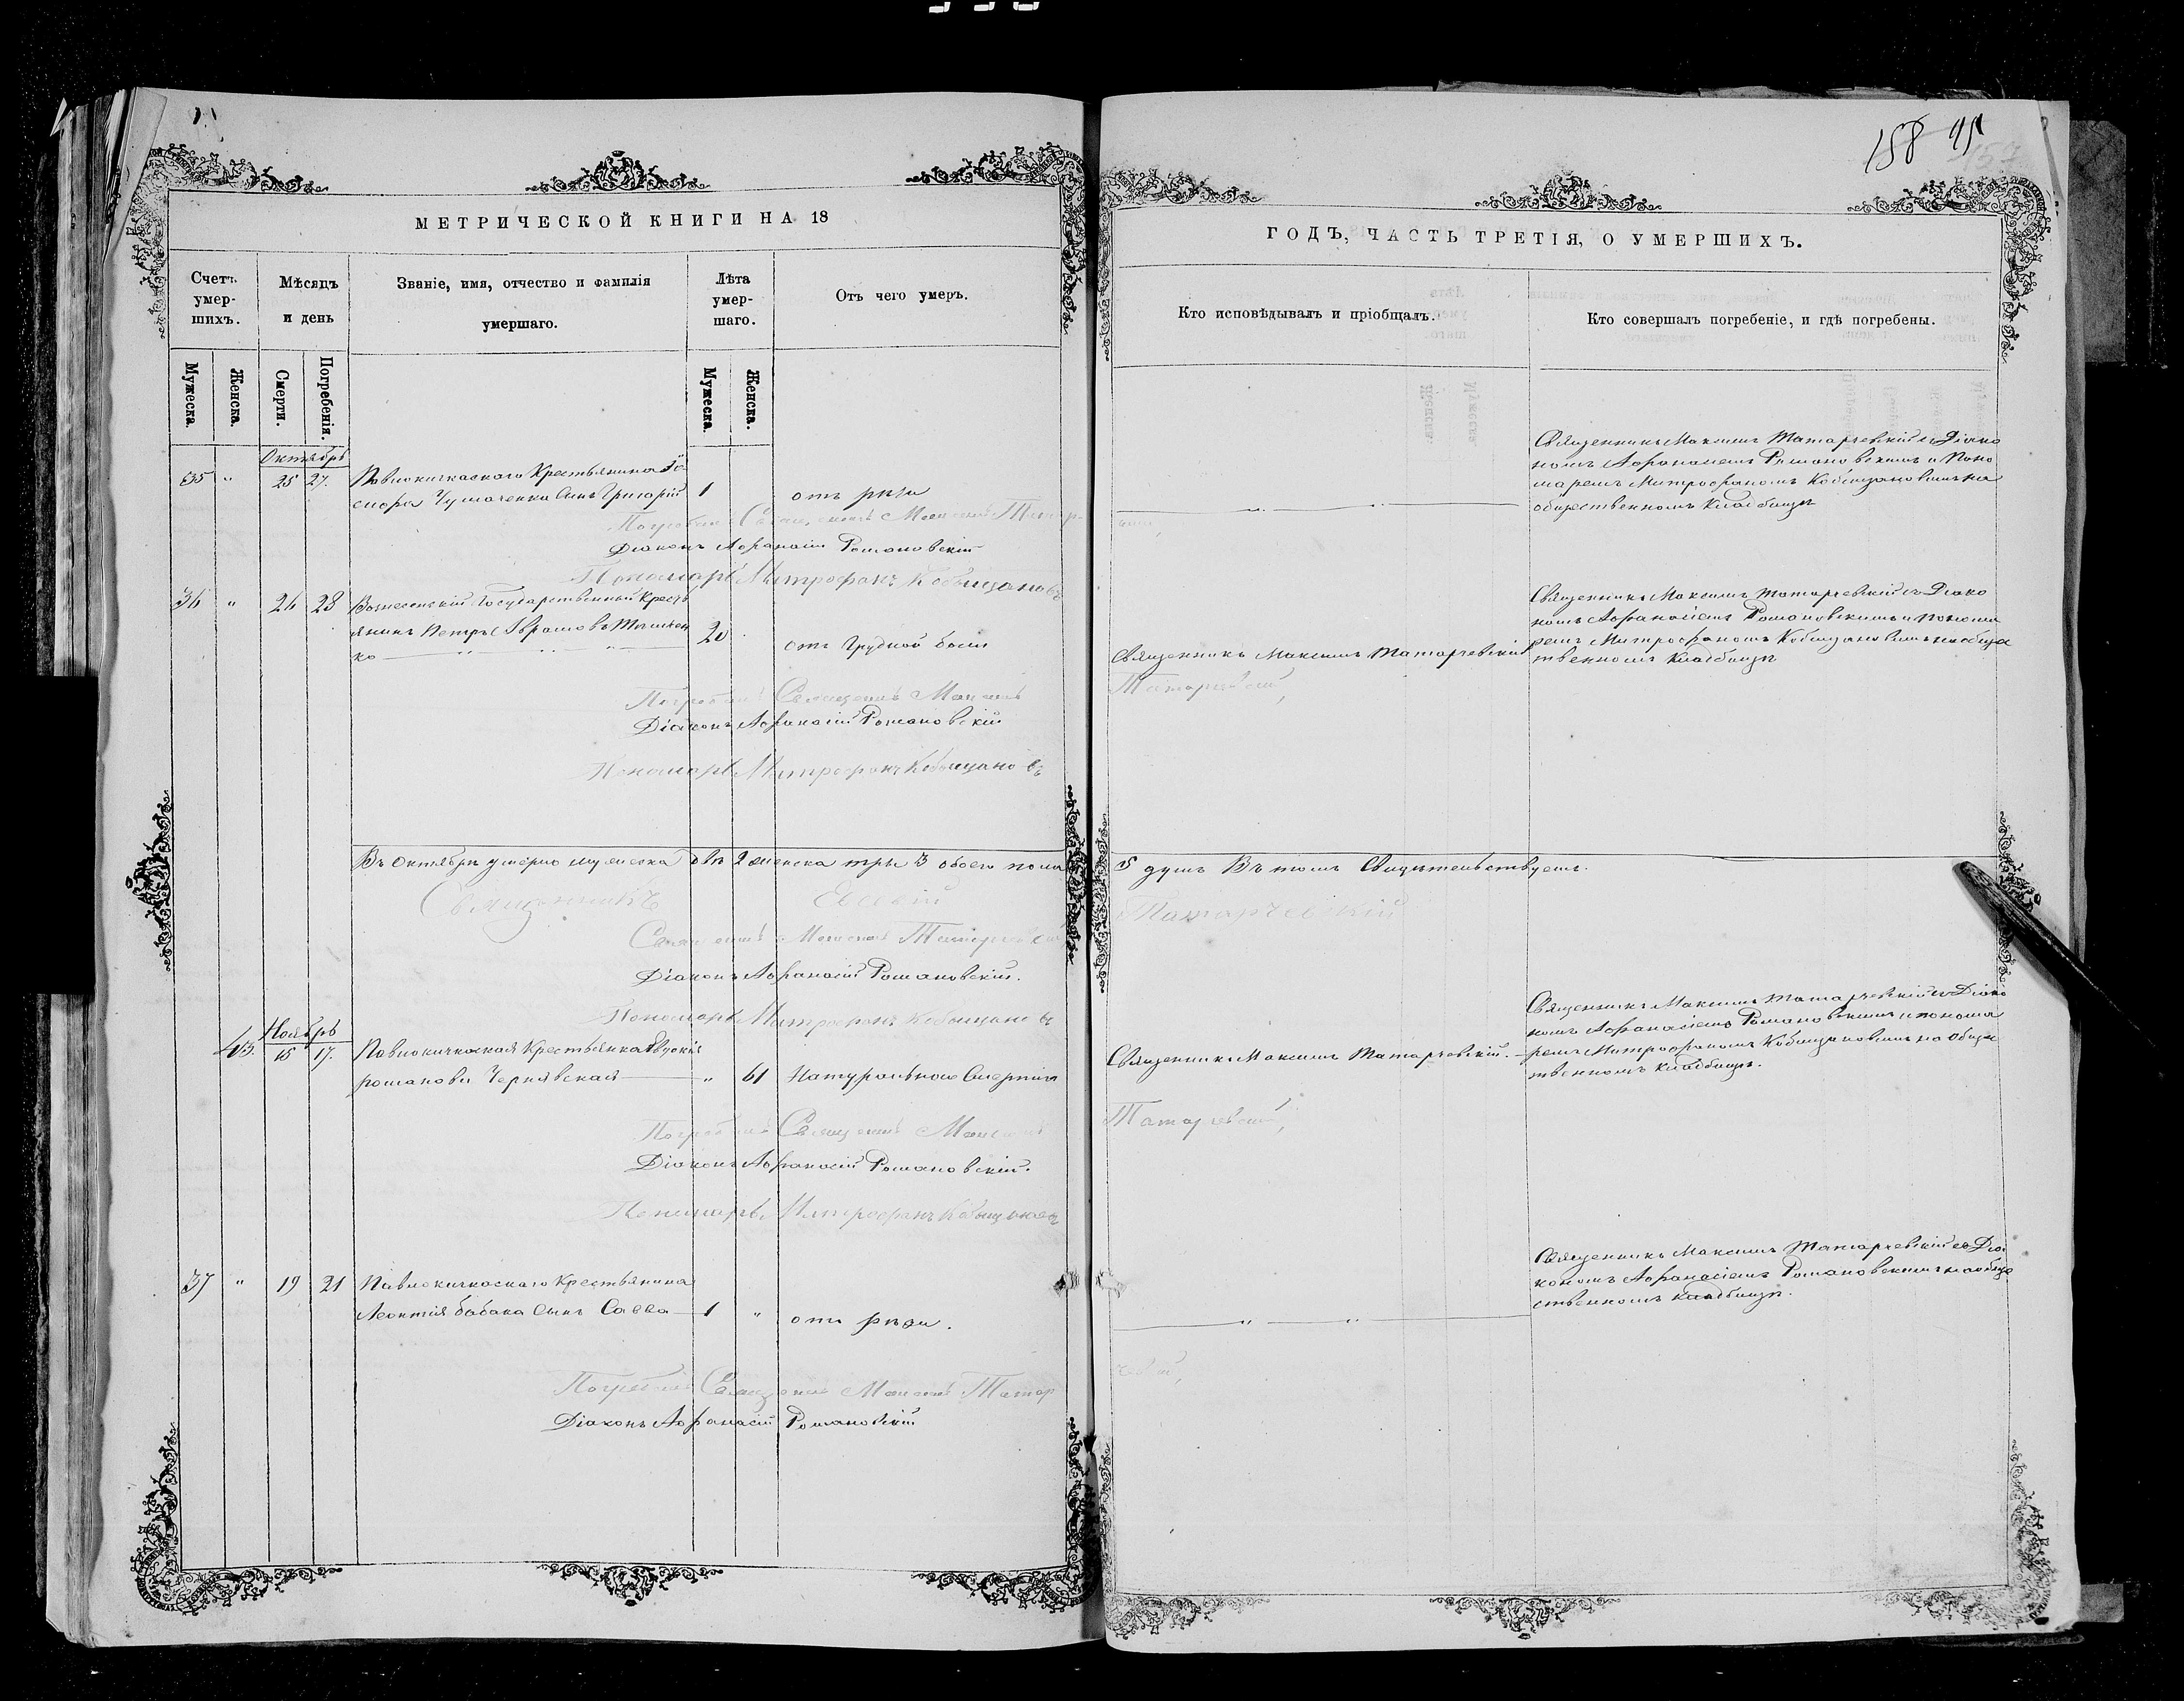 158 95
157
МЕТРИЧЕСКОЙ КНИГИ НА 18
ГОДЪ, ЧАСТЬ ТРЕТІЯ, О УМЕРШИХЪ.
Счетъ умер-шихъ.
Мѣсяцъ и день
Званіе, имя, отчество и фамилія умершаго.
Лѣта умер-шаго.
Отъ чего умеръ.
Кто исповѣдывалъ и пріобщалъ.
Кто совершалъ погребеніе, и гдѣ погребены.
Мужеска.
Женска.
Смерти.
Погребенія.
Мужеска.
Женска.
Октябрь
35 " 25 27. Павлокичкаского Крестьянина Іо
сифа Чумаченка Сынъ Григорій 1 отъ рѣзи
Священникъ Максимъ Татарчевскій съ Діако
номъ Афанасіемъ Романовскимъ и Поно
маремъ Митрофаномъ Кобищановымъ на
общественномъ Кладбищѣ
Погребалъ Священникъ Максимъ Татар-
Діаконъ Афанасій Романовскій
Пономарь Митрофанъ Кобыщановъ
36 " 26 28 Вознесенскій Государственный Крест
янинъ Петръ Аврамовъ
ко 20 отъ Грудной боли
Священникъ Максимъ Татарчевскій
Священникъ Максимъ Татарчевскій съ Діако
номъ Афанасіемъ Романовскимъ и понома
ремъ Митрофаномъ Кобищановымъ на общес
твенномъ Кладбищѣ
Погребалъ Священникъ Максимъ
Татарчевскій,
Діаконъ Афанасій Романовскій
Пономарь Митрофанъ Кобыщановъ
Въ Октябрѣ умерло мужеска два 2 женска три 3 обоего пола
5 душъ Въ томъ Свидѣтельствуемъ.
Священникъ Евсевій
Татарчевскій
Священникъ Максимъ Татарчевскій,
Діаконъ Афанасій Романовскій.
Пономарь Митрофанъ Кобыщановъ
Ноябрь
43. 15 17. Павлокичкаская Крестьянка Евдокія
романова Чернявская " 61 Натуральною Смертію
Священникъ Максимъ Татарчевскій.
Священникъ Максимъ Татарчевскій съ Діако
номъ Афанасіемъ Романовскимъ и понома
ремъ Митрофаномъ Кобищановымъ на общес
твенномъ кладбищѣ.
Погребалъ Священникъ Максимъ
Татарчевскій,
Діаконъ Афанасій Романовскій.
Пономарь Митрофанъ Кобыщановъ
37 " 19 21 Павлокичкаского Крестьянина
Леонтія бабака Сынъ Савва 1 " отъ рѣзи.
Священникъ Максимъ Татарчевскій съ Діа
кономъ Афанасіемъ Романовскимъ на обще
ственномъ кладбищѣ.
Погребалъ Священникъ Максимъ Татар
чевскій,
Діаконъ Афанасій Романовскій